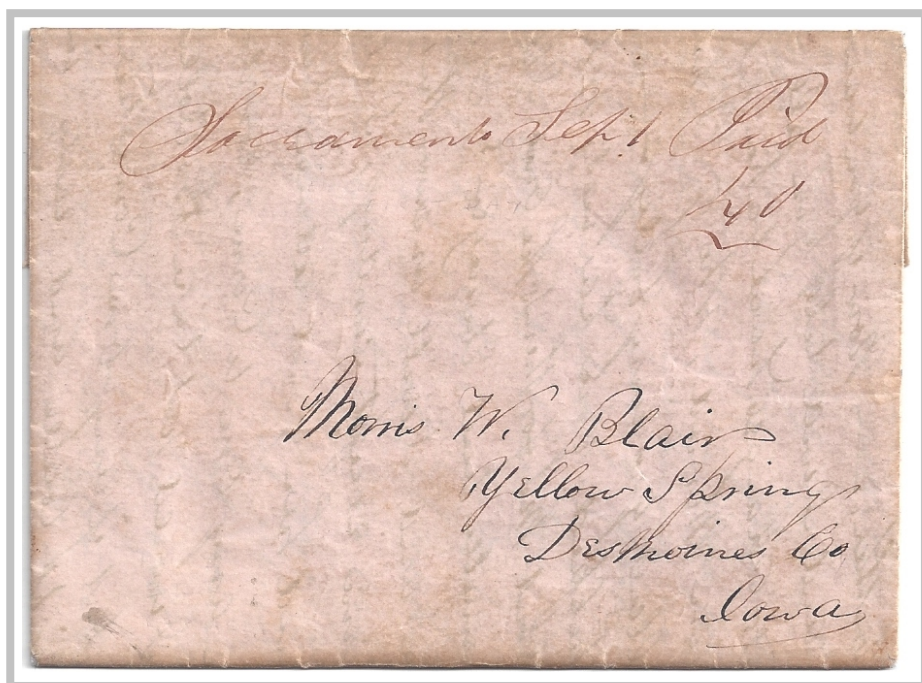 Sacramento Sep. 1 Paid
40
Morris W. Blair
Yellow Spring
Desmoines Co
Iowa